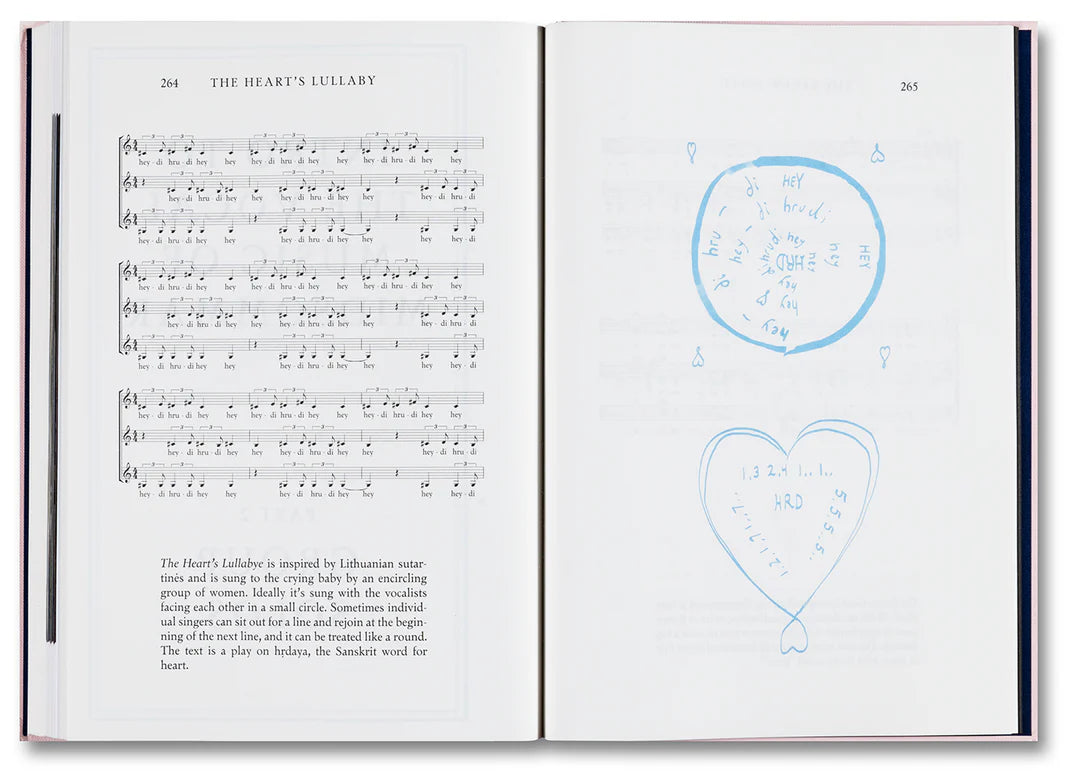 264 THE HEART'S LULLABY
hey - di hru - di hey hey hey - di hru - di hey hey hey - di hru - di hey hey
hey - di hru - di hey hey - di hru - di hey hey hey - di
hey - di hru - di hey hey hey - di hru - di hey hey hey - di
hey - di hru - di hey hey hey - di hru - di hey hey hey - di hru - di hey hey
hey - di hru - di hey hey - di hru - di hey hey hey - di
hey - di hru - di hey hey hey - di hru - di hey hey hey - di
hey - di hru - di hey hey hey - di hru - di hey hey hey - di hru - di hey hey
hey - di hru - di hey hey - di hru - di hey hey hey - di
hey - di hru - di hey hey hey - di hru - di hey hey hey - di
The Heart's Lullabye is inspired by Lithuanian sutar-
tinės and is sung to the crying baby by an encircling
group of women. Ideally it's sung with the vocalists
facing each other in a small circle. Sometimes individ-
ual singers can sit out for a line and rejoin at the begin-
ning of the next line, and it can be treated like a round.
The text is a play on hṛdaya, the Sanskrit word for
heart.
265
HEY
hey - di hru - di HEY
hey - di hrudi hey
hey di hrudi hey hey hey
HRD
1.3 2.4 1.. 1..
HRD
5.5.5.5..
1.2.1.7.1.7..